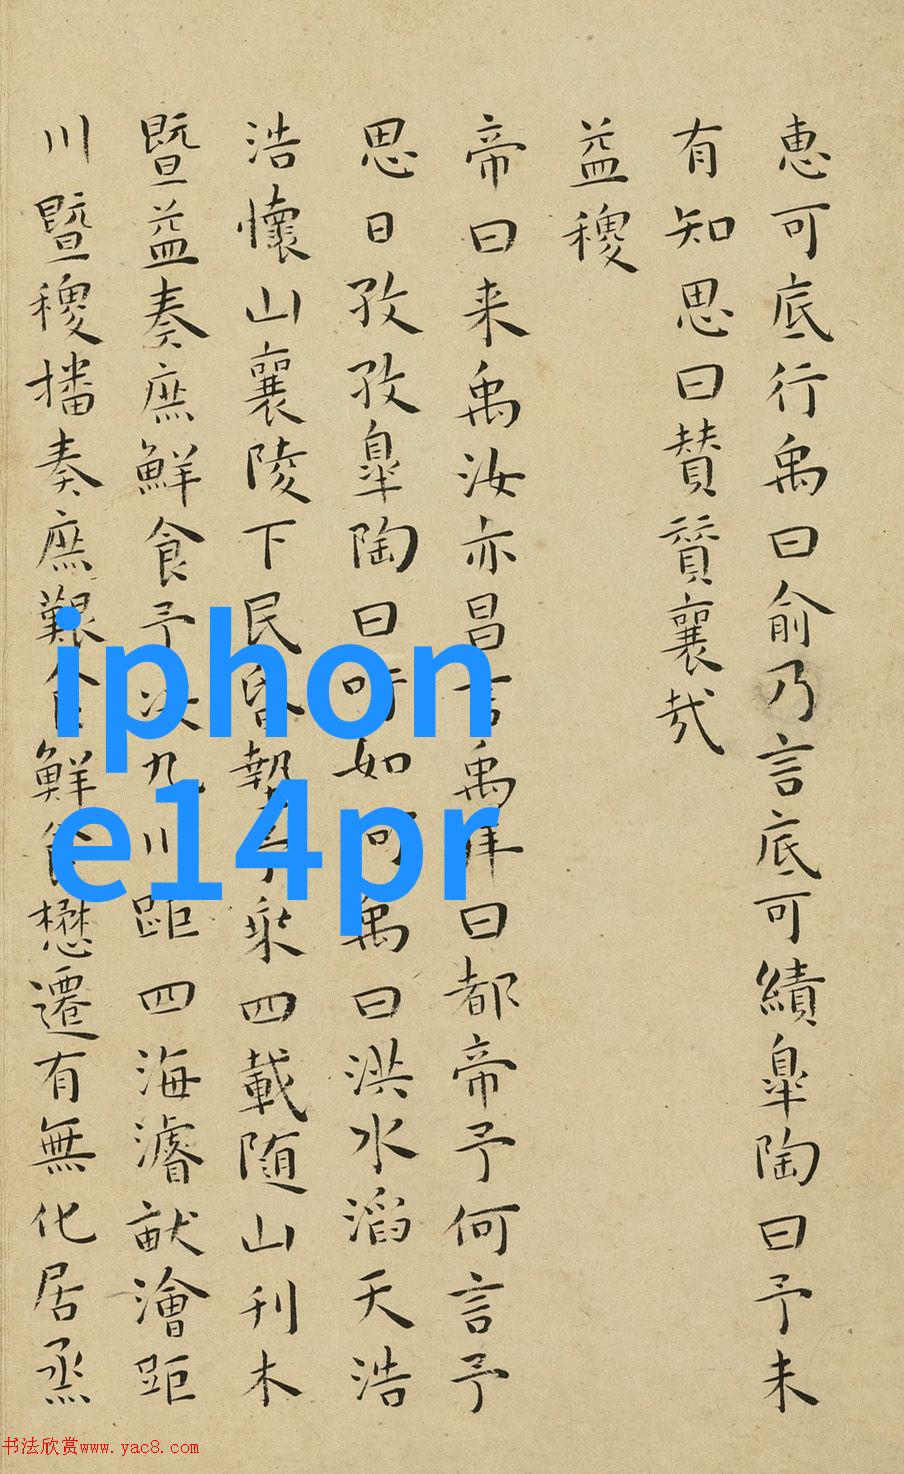 恵可底行禹曰俞乃言底可績臯陶曰予未
有知思曰賛賛襄哉
益稷
帝曰来禹汝亦昌言禹拜曰都帝予何言予
思日孜孜臯陶曰吁如何禹曰洪水滔天浩
浩懷山襄陵下民昏墊予乘四載随山刊木
暨益奏庶鮮食予决九川距四海濬畎澮距
川暨稷播奏庶艱食鮮食懋遷有無化居烝
iphon
e14pr
书法欣赏www.yac8.com